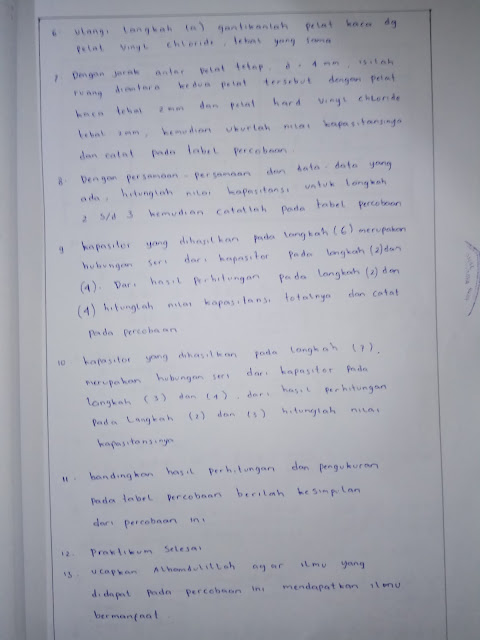 6. Ulangi langkah (a) gantikanlah pelat kaca dg
pelat vinyl chloride, tebal yang sama
7. Dengan jarak antar pelat tetap, d = 4 mm, isilah
ruang diantara kedua pelat tersebut dengan pelat
kaca tebal 2 mm dan pelat hard vinyl chloride
tebal 2mm, kemudian ukurlah nilai kapasitansinya
dan catat pada tabel percobaan.
8. Dengan persamaan - persamaan dan data-data yang
ada, hitunglah nilai kapasitansi untuk langkah
2 s/d 5 kemudian catatlah pada tabel percobaan
9. kapasitor yang dihasilkan pada langkah (6) merupakan
hubungan seri dari kapasitor pada langkah (2) dan
(4). Dari hasil perhitungan pada langkah (2) dan
(4) hitunglah nilai kapasitansi totalnya dan catat
pada percobaan
10. kapasitor yang dihasilkan pada langkah (7),
merupakan hubungan seri dari kapasitor pada
langkah (3) dan (4). dari hasil perhitungan
pada langkah (2) dan (5) hitunglah nilai
kapasitansinya
11. bandingkan hasil perhitungan dan pengukuran
pada tabel percobaan berilah kesimpulan
dari percobaan ini
12. Praktikum selesai
13. ucapkan Alhamdulillah agar ilmu yang
didapat pada percobaan ini mendapatkan ilmu
bermanfaat.